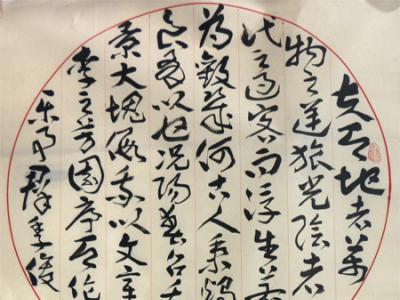 夫天地者萬
物之逆旅光陰者
代之過客而浮生若
為歡幾何古人秉燭
良有以也況陽春召我
景大塊假我以文章
李之芳園序天倫
樂事群季俊